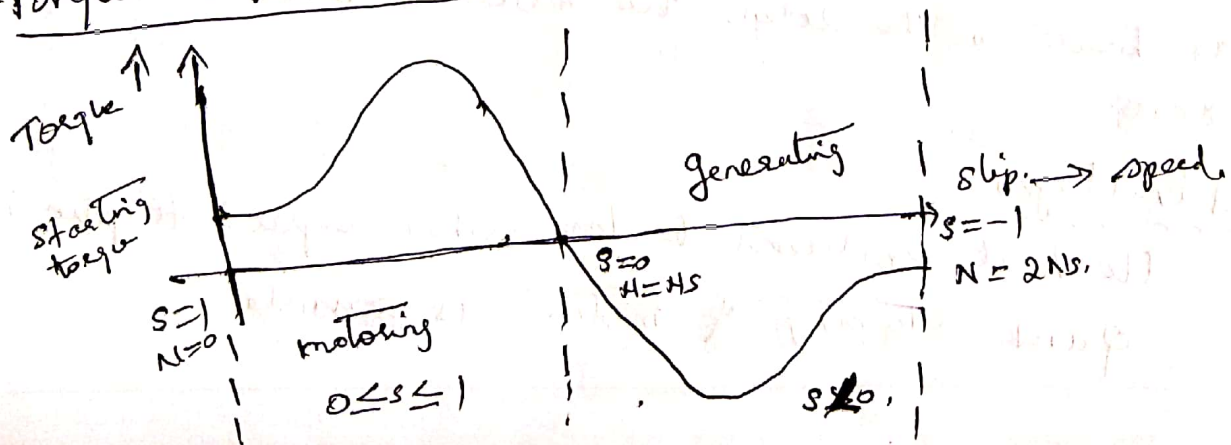 Torque
Torque
Starting
torque
generating
slip. → speed.
S=-1
N = 2Ns.
S=0
N=Ns
S=1
N=0
motoring
0≤s≤1
s<0.